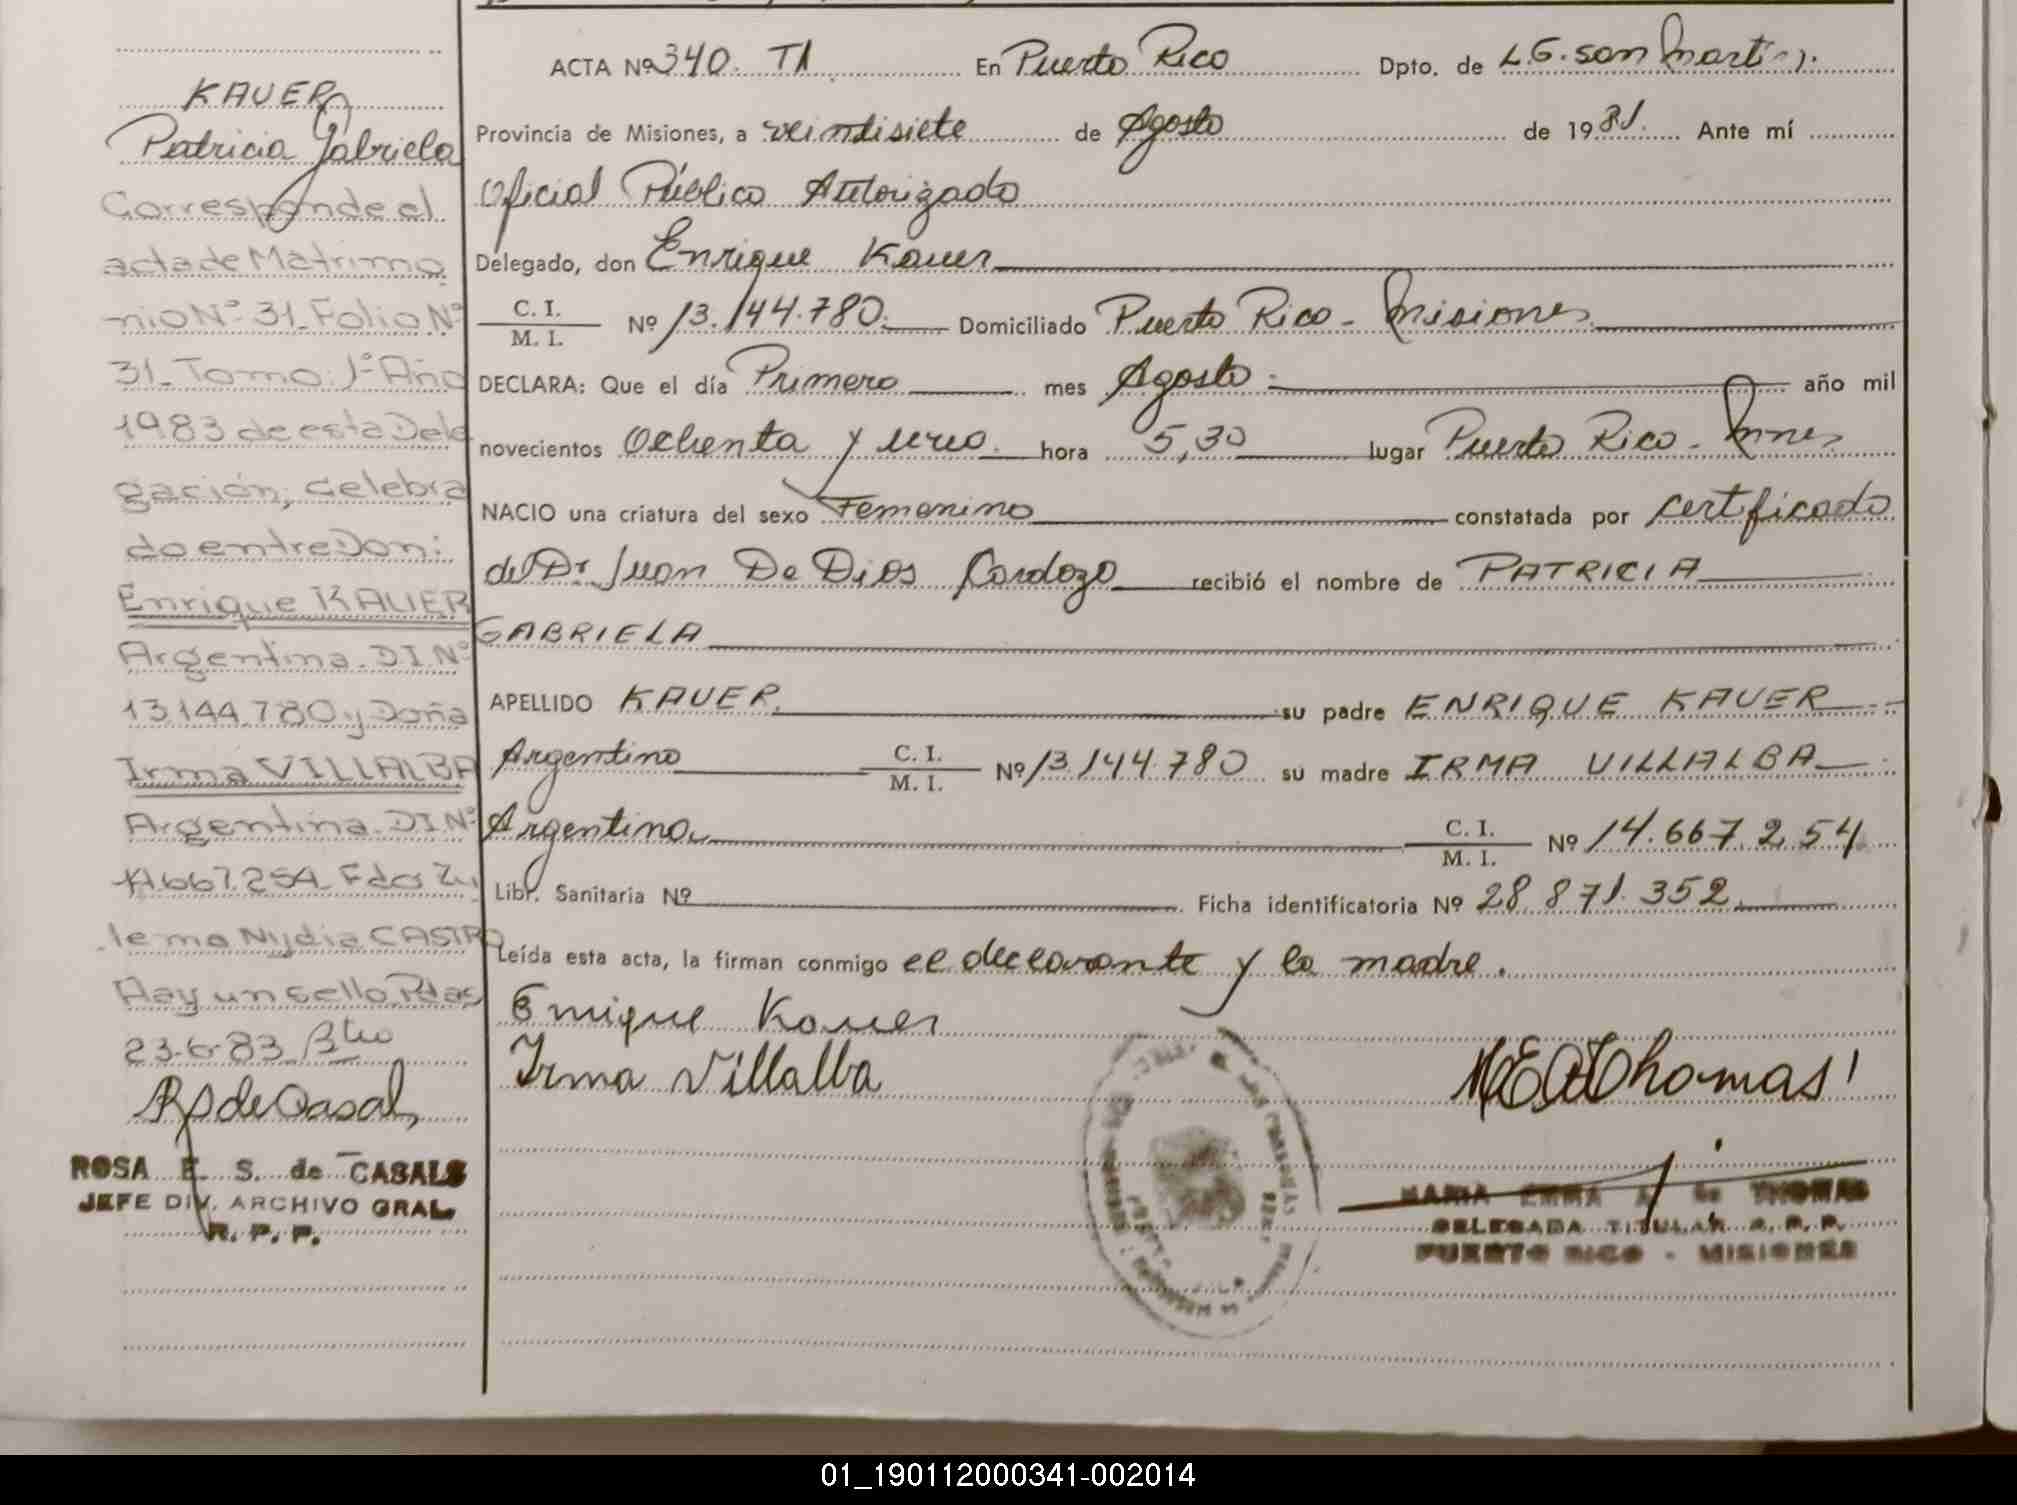 KAUER
Patricia Gabriela
Corresponde al
acta de Matrimo
nio Nº 31 Folio Nº
31 Tomo: 1º Año
1983 de esta Dele
gación, celebra
do entre Don:
Enrique KAUER
Argentina. DI Nº
13.144.780 y Doña
Irma VILLALBA
Argentina. DI Nº
14.667.254 Fdo: Zu
lema Nydia CASTRO
Hay un sello. Pdas
23-6-83
R S de Casals
ROSA E. S. de CASALS
JEFE DIV. ARCHIVO GRAL.
R. P. P.
ACTA Nº 340. T1 En Puerto Rico Dpto. de L.G. san Martin.
Provincia de Misiones, a veintisiete de Agosto de 1981. Ante mí
Oficial Público Autorizado
Delegado, don Enrique Kauer
C. I.
M. I. Nº 13.144.780. Domiciliado Puerto Rico - Misiones
DECLARA: Que el día Primero mes Agosto. año mil
novecientos Ochenta y uno. hora 5,30 lugar Puerto Rico - Mnes
NACIO una criatura del sexo Femenino constatada por certficado
del Dr Juan De Dios Cardozo recibió el nombre de PATRICIA
GABRIELA
APELLIDO KAUER. su padre ENRIQUE KAUER
Argentino C. I.
M. I. Nº 13.144.780 su madre IRMA VILLALBA
Argentina C. I.
M. I. Nº 14.667.254
Libr. Sanitaria Nº Ficha identificatoria Nº 28.871.352
Leída esta acta, la firman conmigo el declarante y la madre.
Enrique Kauer
Irma Villalba
Thomas
MARIA EMMA A. de THOMAS
DELEGADA TITULAR R. P. P.
PUERTO RICO - MISIONES
01_190112000341-002014